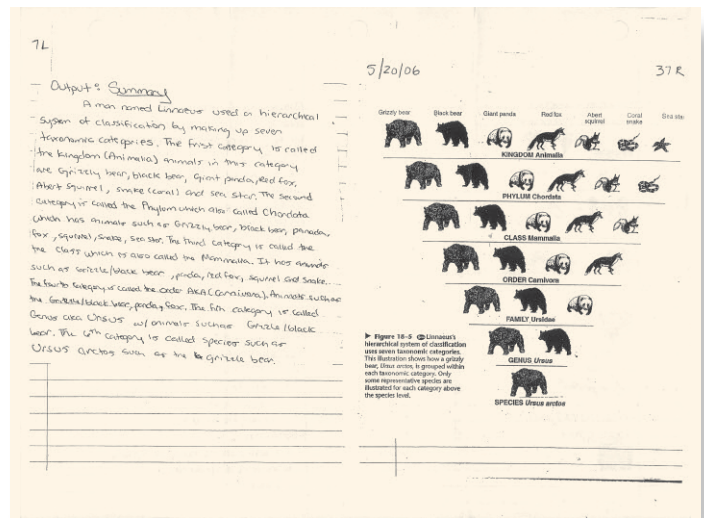 7L
Output: Summary
A man named Linnaeus used a hierarchical
system of classification by making up seven
taxonomic categories. The frist category is called
the kingdom (Animalia) animals in this category
are Grizzly bear, black bear, Giant panda, Red fox,
Abert Squirrel, snake (coral) and sea star. The second
category is called the Phylum which also called Chordata
which has animals such as Grizzly bear, black bear, panada,
fox, squirrel, snake, sea star. The third category is called the
the Class which is also called the Mammalia. It has animals
such as Grizzle/black bear, panda, red fox, squirrel and snake.
The fourto category is called the order AKA (Carnivora). Animals such as
the Grizzle/black bear, panda, fox. The fith category is called
Genus aka Ursus w/ animals such as Grizzle/black
bear. The 6th category is called species such as
Ursus arctos such as the grizzle bear.
5/20/06
37R
Grizzly bear Black bear Giant panda Red fox Abert squirrel Coral snake Sea star
KINGDOM Animalia
PHYLUM Chordata
CLASS Mammalia
ORDER Carnivora
FAMILY Ursidae
GENUS Ursus
SPECIES Ursus arctos
► Figure 18-5 Linnaeus's
hierarchical system of classification
uses seven taxonomic categories.
This illustration shows how a grizzly
bear, Ursus arctos, is grouped within
each taxonomic category. Only
some representative species are
illustrated for each category above
the species level.